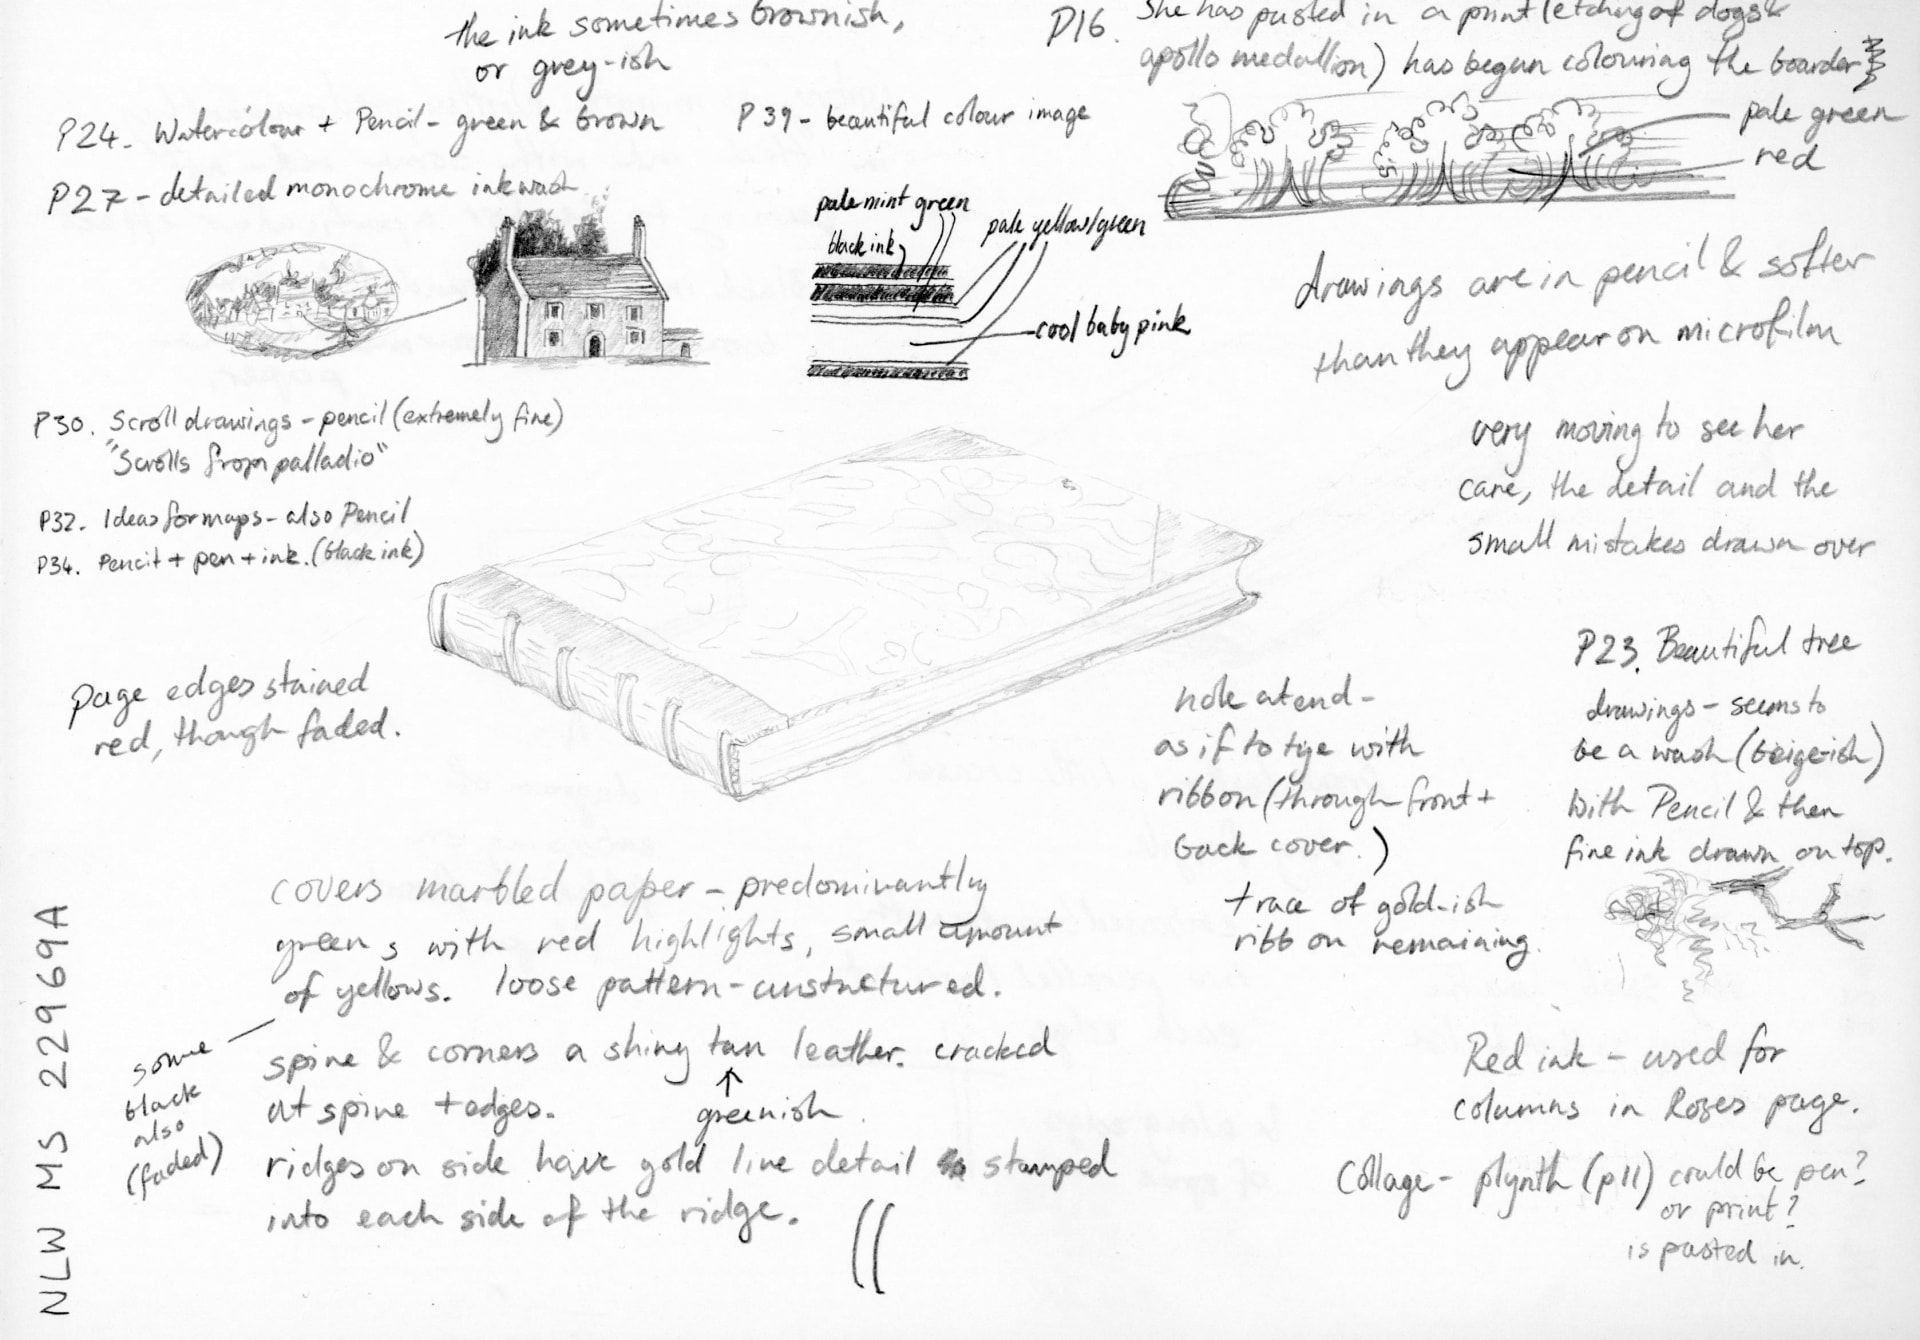 the ink sometimes brownish,
or grey-ish
P16. She has pasted in a print (etching of dogs &
apollo medallion) has begun colouring the boarder
pale green
red
P24. Watercolour + Pencil - green & brown
P27 - detailed monochrome ink wash
P39 - beautiful colour image
pale mint green
black ink
pale yellow/green
cool baby pink
drawings are in pencil & softer
than they appear on microfilm
P30. Scroll drawings - pencil (extremely fine)
"Scrolls from palladio"
P32. Ideas for maps - also Pencil
P34. Pencil + pen + ink. (black ink)
very moving to see her
care, the detail and the
small mistakes drawn over
page edges stained
red, though faded.
hole at end -
as if to tye with
ribbon (through front +
back cover.)
trace of gold-ish
ribbon remaining.
P23. Beautiful tree
drawings - seems to
be a wash (beige-ish)
with Pencil & then
fine ink drawn on top.
covers marbled paper - predominantly
greens with red highlights, small amount
of yellows. loose pattern - unstructured.
some
black
also
(faded)
spine & corners a shiny tan leather. cracked
at spine + edges.
greenish
ridges on side have gold line detail stamped
into each side of the ridge.
Red ink - used for
columns in Roses page.
Collage - plynth (p11) could be pen?
or print?
is pasted in.
NLW MS 22969A